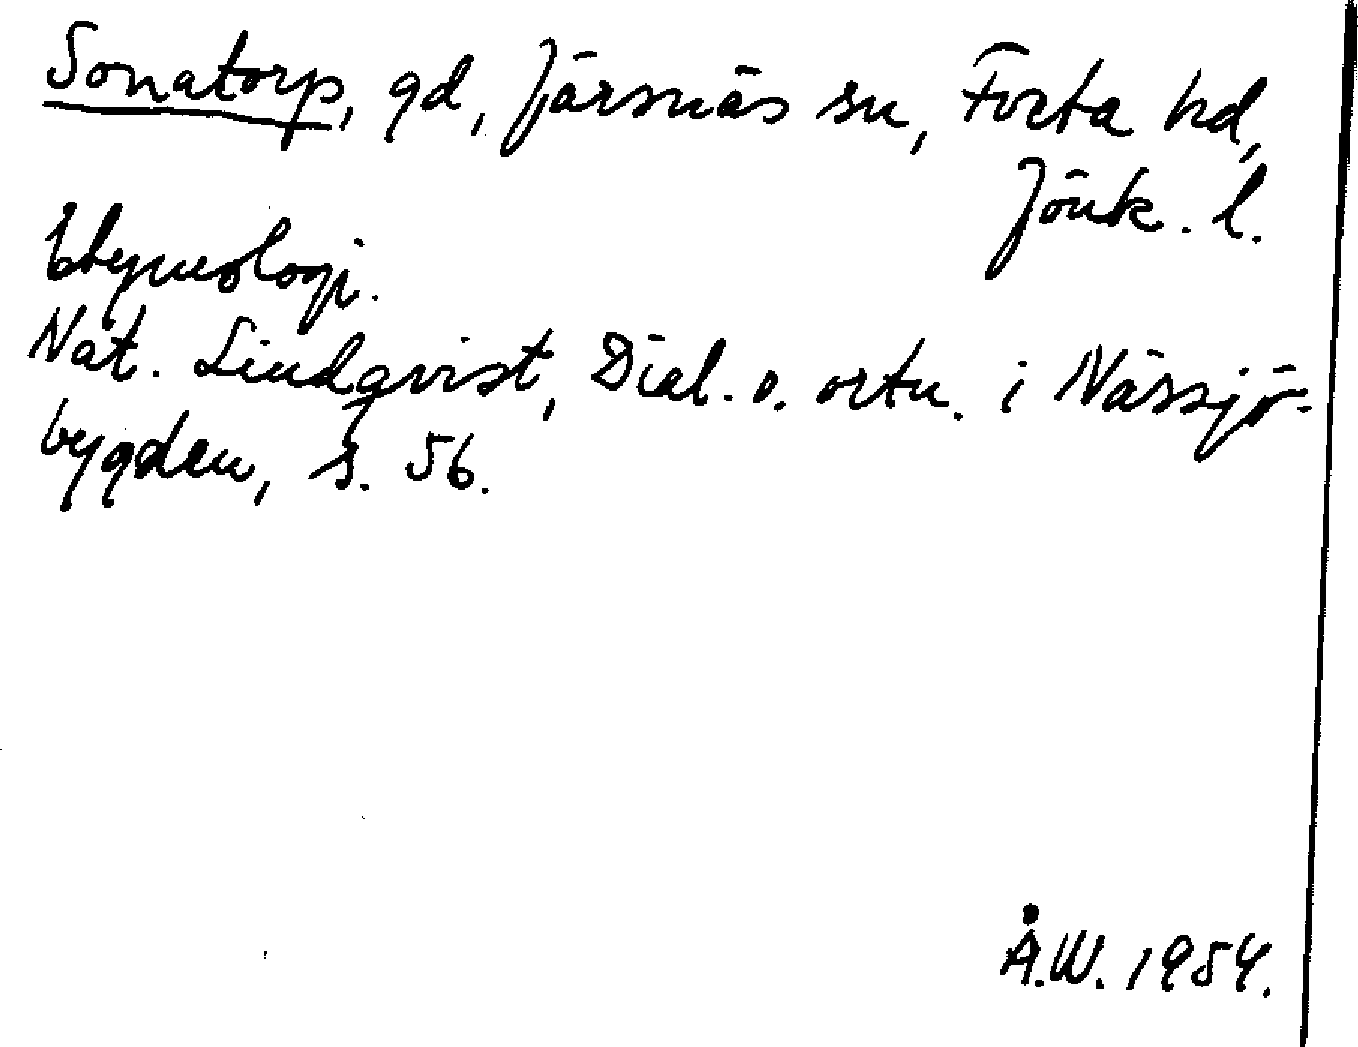 Sonatorp, gd, Järsnäs sn, Tveta hd,
Jönk. l.
Etymologi.
Nat. Lindqvist, Dial. o. ortn. i Nässjö-
bygden, s. 56.
Å.W. 1954.